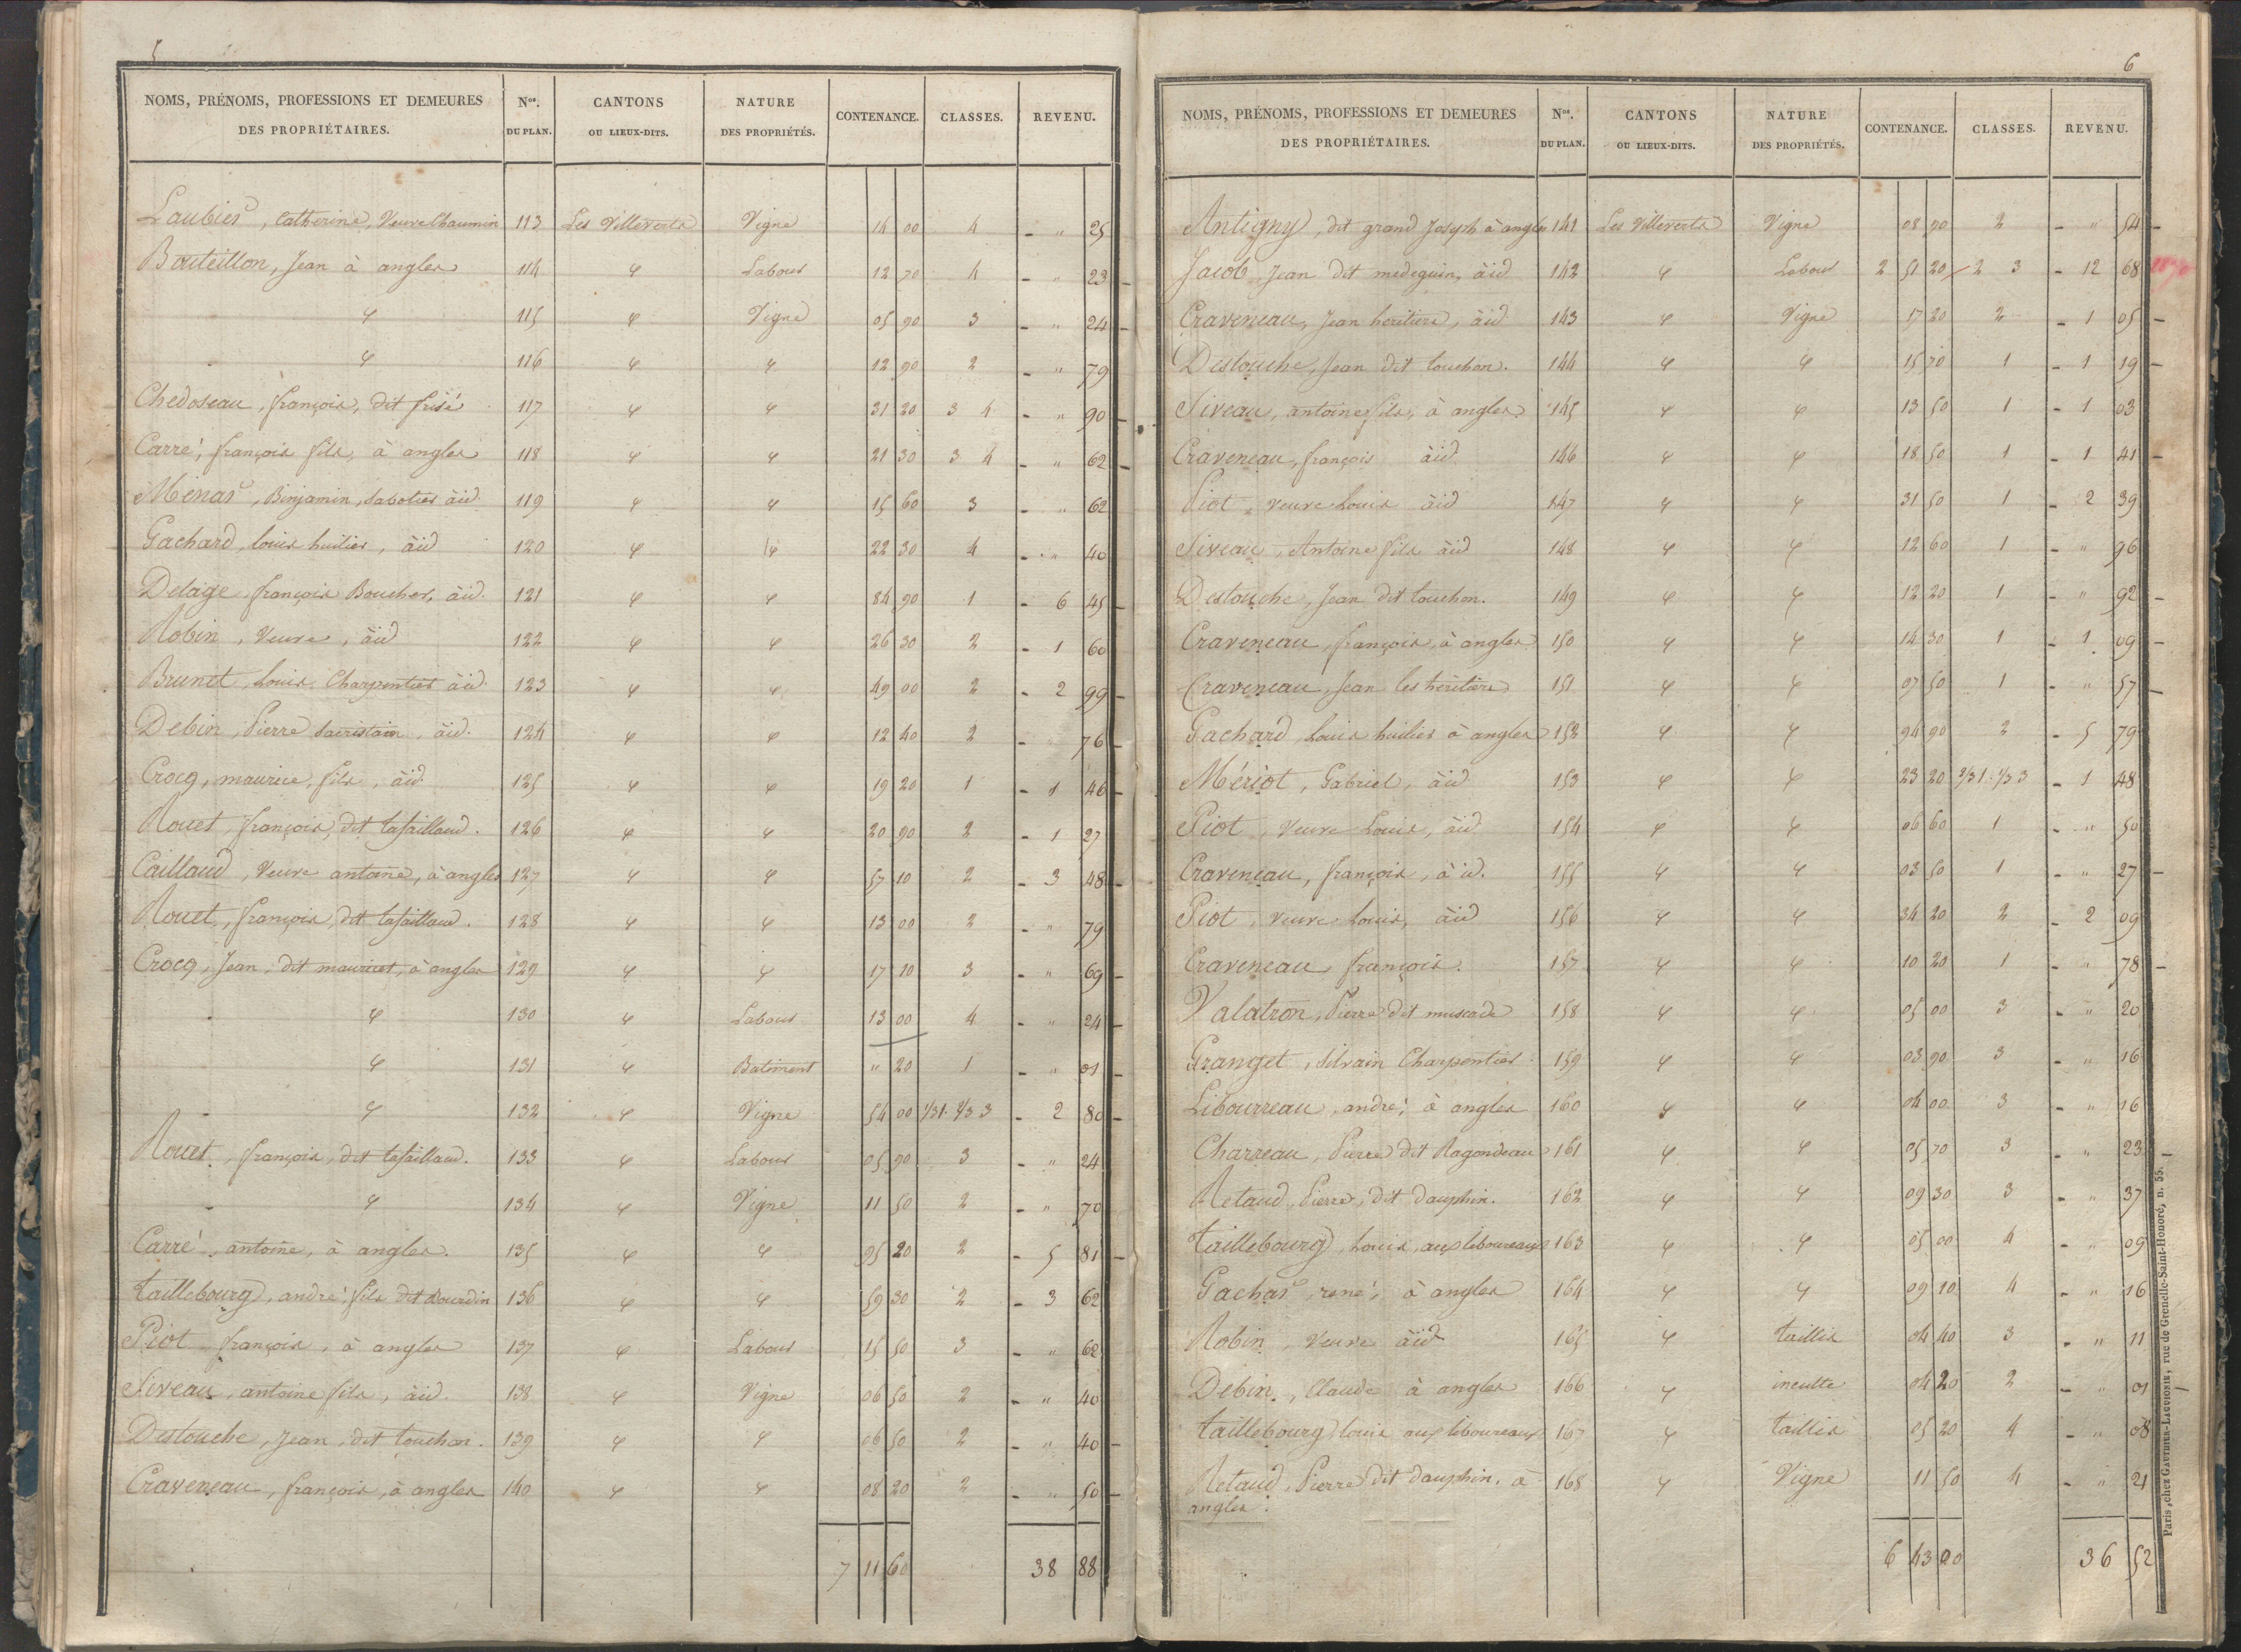 5
NOMS, PRÉNOMS, PROFESSIONS ET DEMEURES DES PROPRIÉTAIRES. Nos. DU PLAN. CANTONS OU LIEUX-DITS. NATURE DES PROPRIÉTÉS. CONTENANCE. CLASSES. REVENU.
Laubier, Catherine, Veuve Chaumin 113 Les Villeverts Vigne 14 00 4 - " 25
Bouteillon, Jean à angles 114 φ Labour 12 70 4 - " 23 -
φ 115 φ Vigne 05 90 3 - " 24 -
φ 116 φ φ 12 90 2 - " 79
Chedoseau, françois, dit frisé 117 φ φ 31 20 3 4 - " 90 -
Carré, françois fils, à angles 118 φ φ 21 30 3 4 - " 62 -
Menar, Binjamin, Sabotier àid. 119 φ φ 15 60 3 - " 62
Gachard, louis huilier, àid 120 φ φ 22 30 4 - " 40
Delage françois Boucher, àid. 121 φ φ 84 90 1 - 6 45 -
Robin, Veuve, àid 122 φ φ 26 30 2 - 1 60
Brunet, Louis Charpentier àid. 123 φ φ 49 00 2 - 2 99 -
Debin, Pierre Sacristain, àid. 124 φ φ 12 40 2 - 76 -
Crocq, maurice, fils, àid. 125 φ φ 19 20 1 - 1 46 -
Rouet, françois, dit lafaillaud. 126 φ φ 20 90 2 - 1 27
Caillaud, Veuve antoine, à angles 127 φ φ 57 10 2 - 3 48 -
Rouet, françois, dit lafaillaud. 128 φ φ 13 00 2 - " 79
Crocq, Jean, dit mauricet, à angles 129 φ φ 17 10 3 - " 69 -
φ 130 φ Labour 13 00 4 - " 24 -
φ 131 φ Batiment " 20 1 - " 01 -
φ 132 φ Vigne 54 00 1/3 1. 2/3 3 - 2 80 -
Rouet, françois, dit lafaillaud. 133 φ Labour 05 90 3 - " 24
φ 134 φ Vigne 11 50 2 - " 70
Carré, antoine, à angles. 135 φ φ 95 20 2 - 5 81 -
taillebourg, andré, fils dit Dourdin 136 φ φ 59 30 2 - 3 62
Piot françois, à angles 137 φ Labour 15 50 3 - " 62
Siveau, antoine fils, àid. 138 φ Vigne 06 50 2 - " 40
Destouche, Jean, dit touchon. 139 φ φ 06 50 2 - " 40 -
Craveneau, françois, à angles 140 φ φ 08 20 2 - " 50 -
7 11 60 38 88
6
NOMS, PRÉNOMS, PROFESSIONS ET DEMEURES DES PROPRIÉTAIRES. Nos. DU PLAN. CANTONS OU LIEUX-DITS. NATURE DES PROPRIÉTÉS. CONTENANCE. CLASSES. REVENU.
Antigny, dit grand Joseph à angles 141 Les Villeverts Vigne 08 90 2 - " 54 -
Jacob Jean dit medeguin, àid 142 φ Labour 2 51 20 2 3 - 12 68
Craveneau, Jean heritiers, àid 143 φ Vigne 17 20 2 - 1 05 -
Destouche, Jean dit touchon. 144 φ φ 15 70 1 - 1 19 -
Siveau, antoine fils, à angles 145 φ φ 13 50 1 - 1 03
Craveneau, françois àid 146 φ φ 18 50 1 - 1 41 -
Piot, veuve Louis àid 147 φ φ 31 50 1 - 2 39
Siveau, Antoine fils àid 148 φ φ 12 60 1 - " 96
Destouche, Jean dit touchon. 149 φ φ 12 20 1 - " 92 -
Craveneau, françois, à angles 150 φ φ 14 30 1 - 1 09 -
Craveneau, Jean les heritiers 151 φ φ 07 50 1 - " 57 -
Gachard, Louis huilier à angles 152 φ φ 94 90 2 - 5 79
Mériot, Gabriel, àid 153 φ φ 23 20 2/3 1. 1/3 3 - 1 48
Piot, Veuve Louis, àid 154 φ φ 06 60 1 - " 50
Craveneau, françois, à id. 155 φ φ 03 50 1 - " 27 -
Piot, veuve louis, àid 156 φ φ 34 20 2 - 2 09
Craveneau, françois. 157 φ φ 10 20 1 - " 78 -
Valatron, Pierre dit muscade 158 φ φ 05 00 3 - " 20
Granget, Silvain Charpentier 159 φ φ 03 90 3 - " 16
Libourreau, andré, à angles 160 φ φ 04 00 3 - " 16
Charreau, Pierre dit Ragondeau 161 φ φ 05 70 3 - " 23 -
Retaud, Pierre, dit dauphin. 162 φ φ 09 30 3 - " 37
taillebourg, Louis, aux liboureaux 163 φ φ 05 00 4 - " 09
Gachar, rené, à angles 164 φ φ 09 10 4 - " 16
Robin, Veuve àid 165 φ taillis 04 40 3 - " 11
Debin, Claude à angles 166 φ inculte 04 20 2 - " 01 -
taillebourg, louis aux liboureaux 167 φ taillis 05 20 4 - " 08
Retaud, Pierre dit dauphin, à 168 φ Vigne 11 50 4 - " 21
angles.
6 43 00 36 52
Paris, chez GAUTHIER-LAGUIONIE, rue de Grenelle-Saint-Honoré, n. 55.